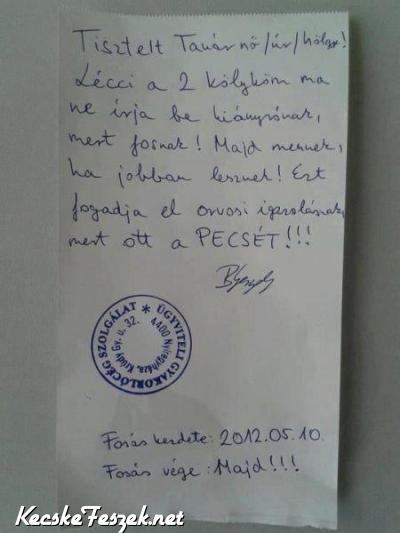 Tisztelt Tanár nő/úr/hölgy!
Lécci a 2 kölyköm ma
ne írja be hiányzónak,
mert fosnak! Majd mennek,
ha jobban lesznek! Ezt
fogadja el orvosi igazolásnak,
mert ott a PECSÉT!!!
ÜGYVITELI GYAKORLÓCÉG SZOLGÁLAT *
4400 Nyíregyháza, Krúdy Gy. u. 32.
Fosás kezdete: 2012.05.10.
Fosás vége: Majd!!!
KecskeFeszek.net